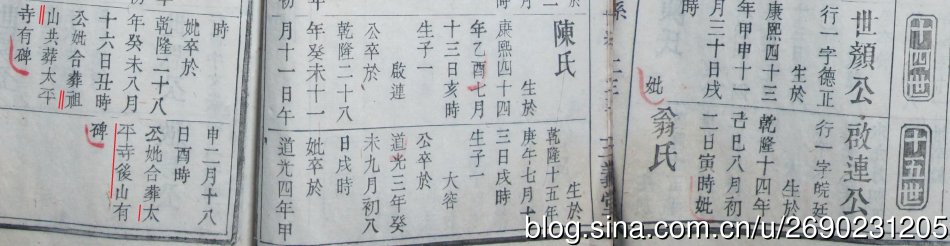 十四世
世顏公
行一字德正
生於
康熙四十三
年甲申十一
月三十日戌
妣
陳氏
生於
康熙四十四
年乙酉七月
十三日亥時
生子一
啟連
公卒於
乾隆二十八
年癸未十一
月十一日午
時
妣卒於
乾隆二十八
年癸未八月
十六日丑時
公妣合葬祖
山共葬太平
寺有碑
十五世
啟連公
行一字皖廷
生於
乾隆十四年
己巳八月初
二日寅時妣
翁氏
生於
乾隆十五年
庚午七月十
三日戌時
生子一
大容
公卒於
道光三年癸
未九月初八
日戌時
妣卒於
道光四年甲
申二月十八
日酉時
公妣合葬太
平寺後山有
碑
blog.sina.com.cn/u/2690231205